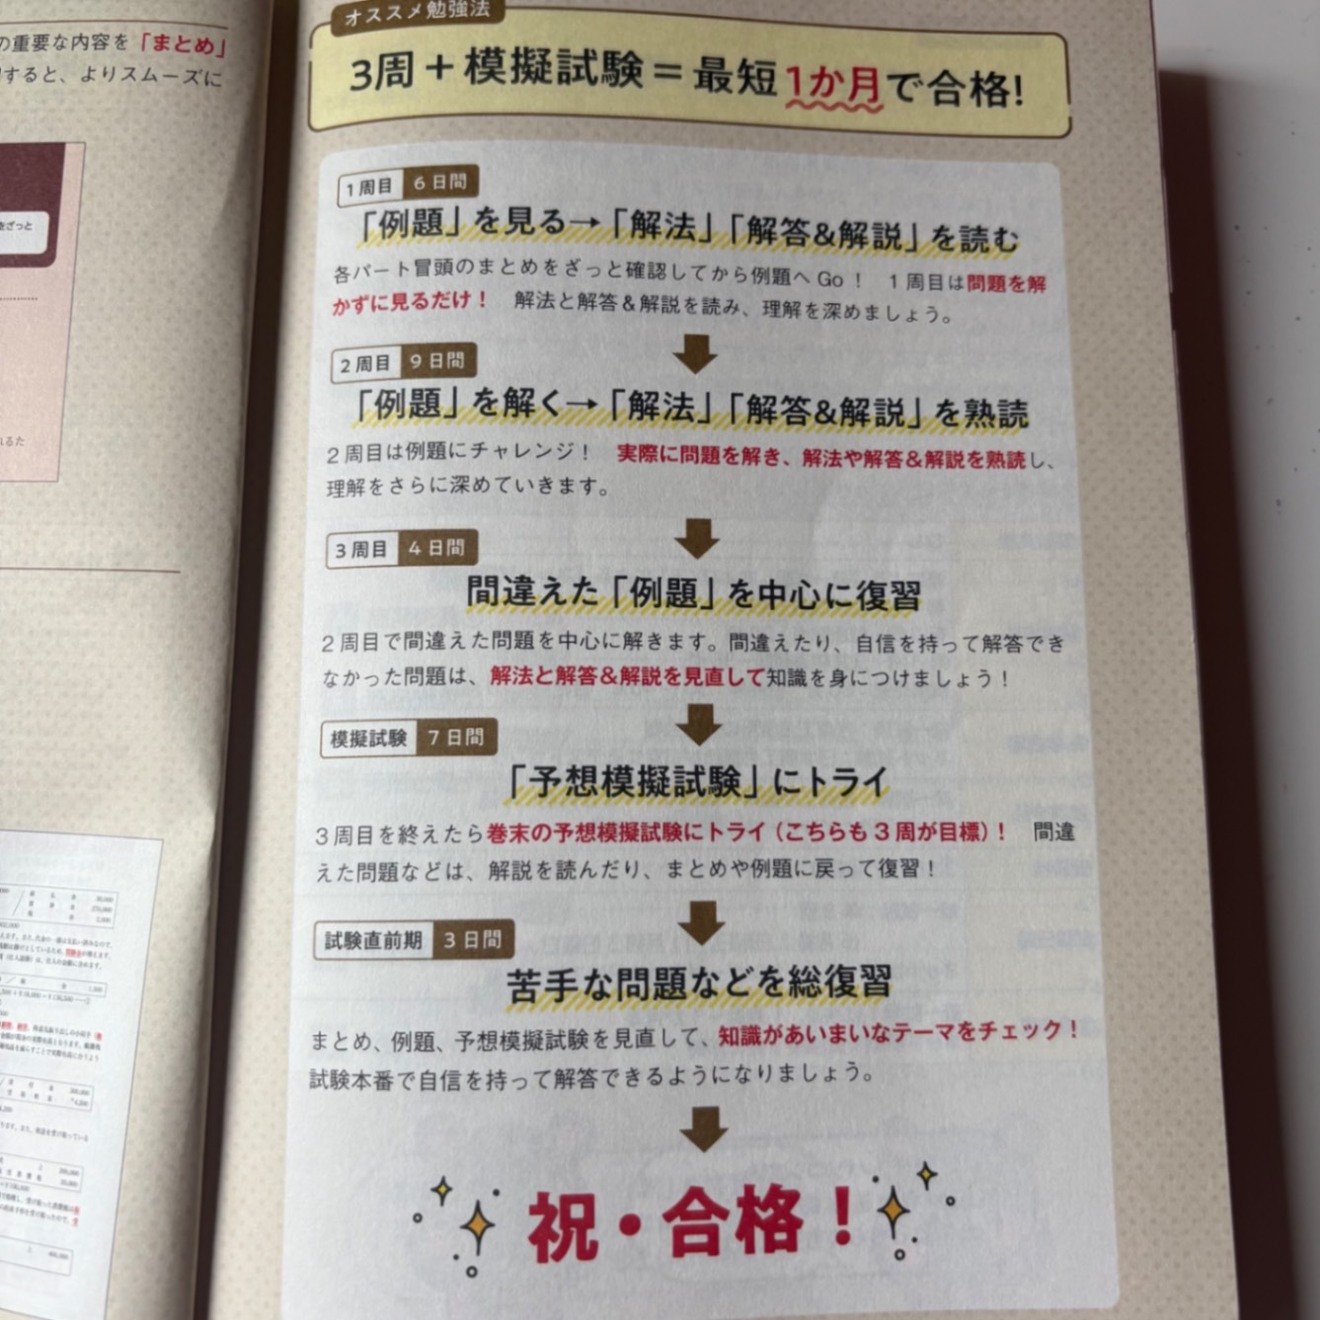 の重要な内容を「まとめ」
すると、よりスムーズに
をざっと
オススメ勉強法
3周＋模擬試験＝最短1か月で合格!
1周目 6日間
「例題」を見る→「解法」「解答&解説」を読む
各パート冒頭のまとめをざっと確認してから例題へ Go！ 1周目は問題を解
かずに見るだけ！ 解法と解答＆解説を読み、理解を深めましょう。
2周目 9日間
「例題」を解く→「解法」「解答&解説」を熟読
2周目は例題にチャレンジ！ 実際に問題を解き、解法や解答＆解説を熟読し、
理解をさらに深めていきます。
3周目 4日間
間違えた「例題」を中心に復習
2周目で間違えた問題を中心に解きます。間違えたり、自信を持って解答でき
なかった問題は、解法と解答＆解説を見直して知識を身につけましょう！
模擬試験 7日間
「予想模擬試験」にトライ
3周目を終えたら巻末の予想模擬試験にトライ（こちらも3周が目標）！ 間違
えた問題などは、解説を読んだり、まとめや例題に戻って復習！
試験直前期 3日間
苦手な問題などを総復習
まとめ、例題、予想模擬試験を見直して、知識があいまいなテーマをチェック！
試験本番で自信を持って解答できるようになりましょう。
祝・合格！